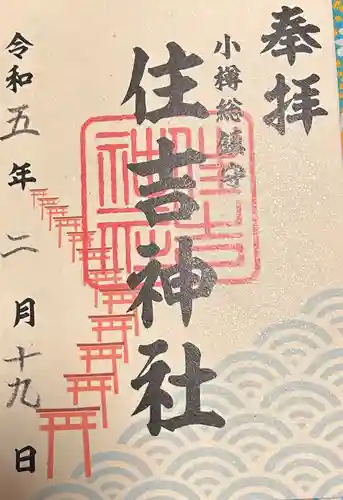 奉拝
小樽総鎮守
住吉神社
令和五年二月十九日
住吉
神社